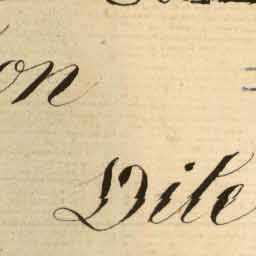 on
Dile